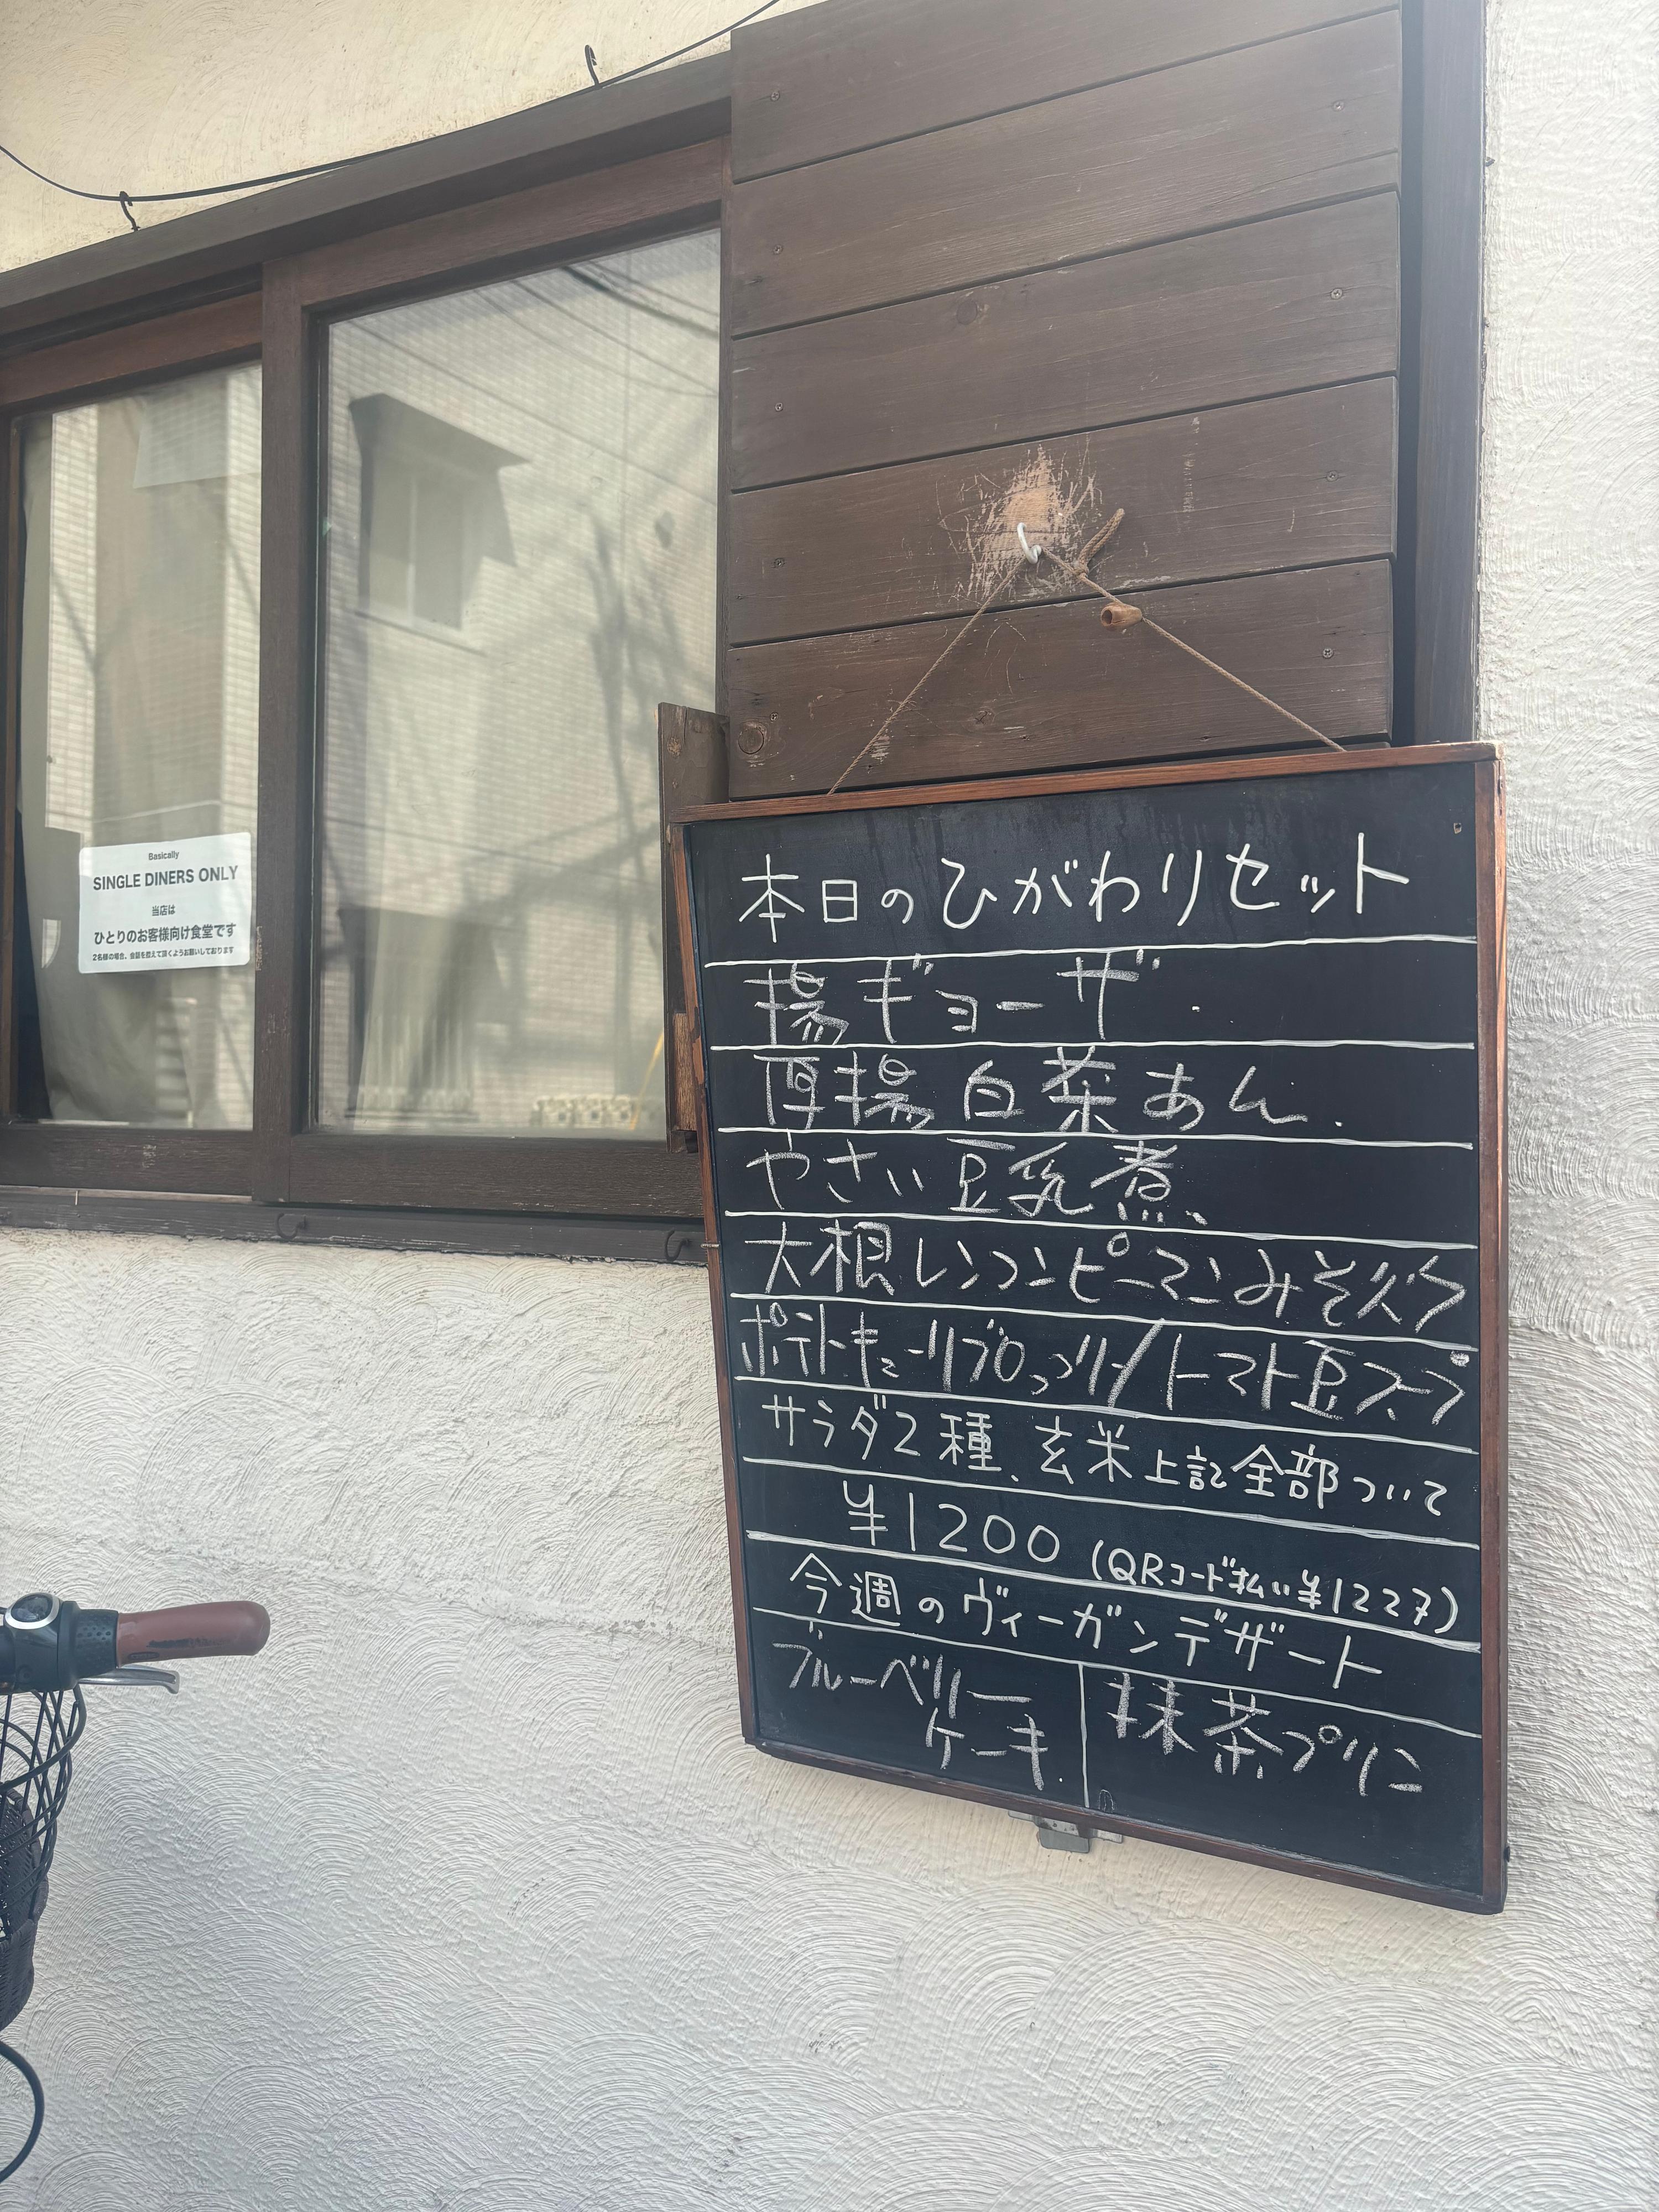 Basically
SINGLE DINERS ONLY
当店は
ひとりのお客様向け食堂です
2名様の場合、会話を控えて頂くようお願いしております
本日のひがわりセット
揚ギョーザ.
厚揚 白菜あん.
やさい豆乳煮、
大根レンコンピーマンみそ炊ク
ポテトキューリブロッコリー/トマト豆スープ
サラダ2種、玄米上記全部ついて
¥1200 (QRコード払い¥1227)
今週のヴィーガンデザート
ブルーベリーケーキ.
抹茶プリン